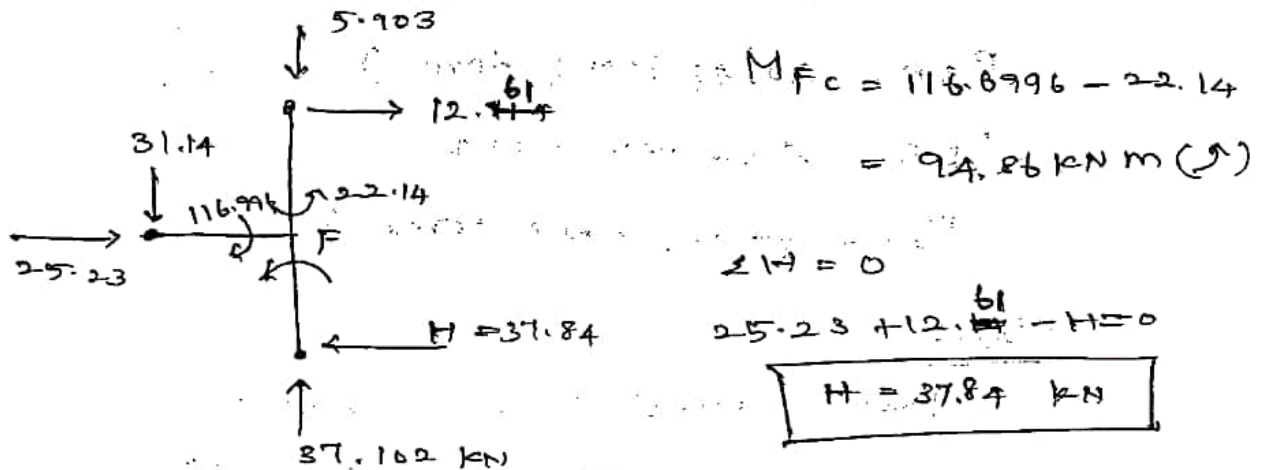 5.903
12.61
31.14
116.996
22.14
F
25.23
H = 37.84
37.102 KN
MFC = 116.8996 - 22.14
= 94.86 KN m (↺)
ΣH = 0
25.23 + 12.61 - H = 0
H = 37.84 KN